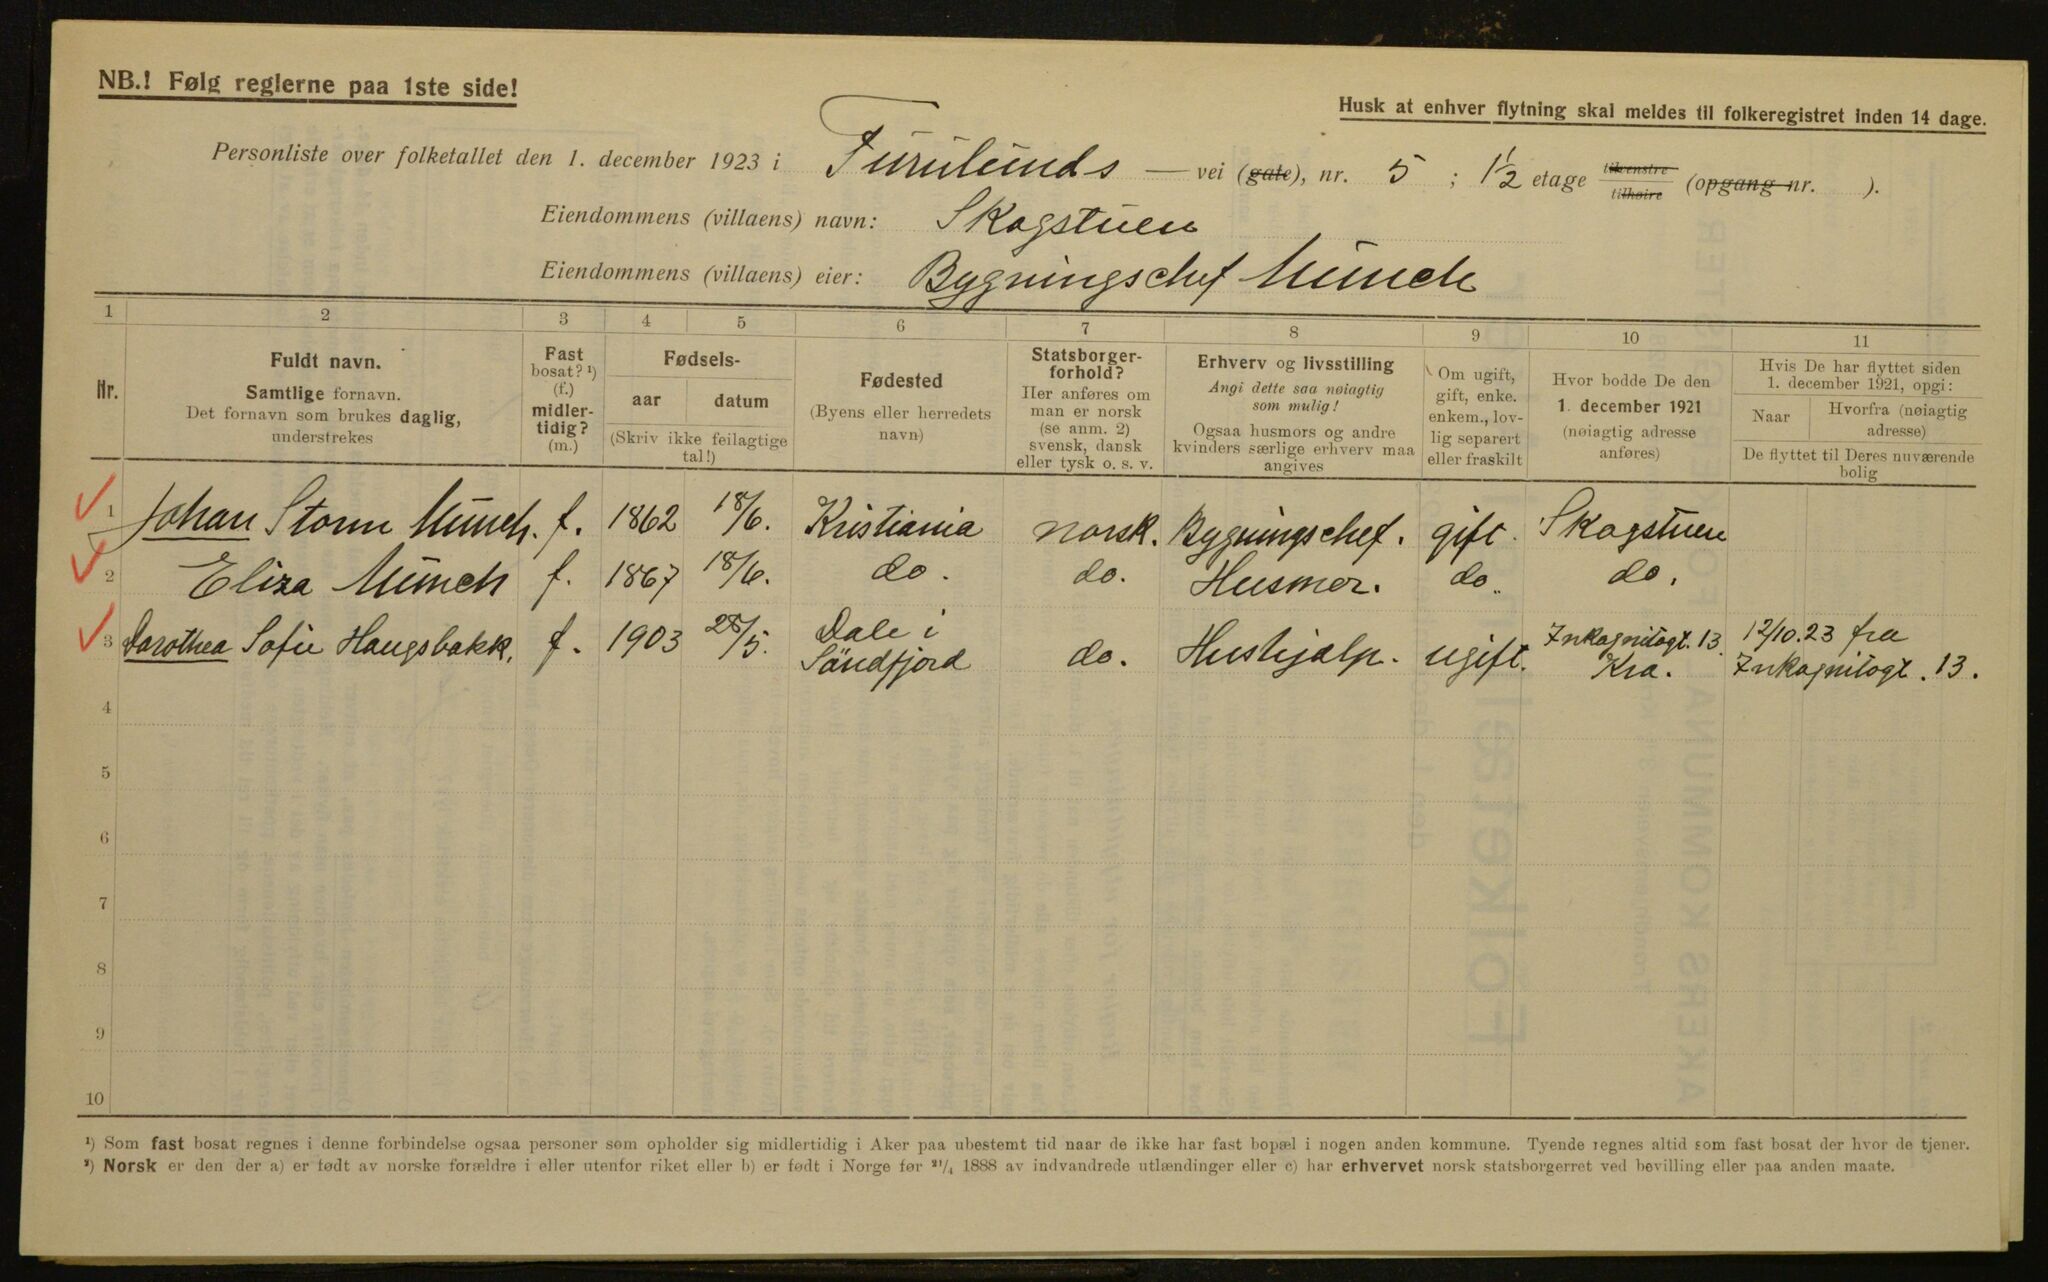 NB.! Følg reglerne paa 1ste side!
Husk at enhver flytning skal meldes til folkeregistret inden 14 dage.
Personliste over folketallet den 1. december 1923 i Furulunds — vei (gate), nr. 5 ; 1½ etage tilvenstre tilhøire (opgang nr. ).
Eiendommens (villaens) navn: Skogstuen
Eiendommens (villaens) eier: Bygningschef Munch
1 2 3 4 5 6 7 8 9 10 11
Nr.
Fuldt navn.
Samtlige fornavn.
Det fornavn som brukes daglig,
understrekes
Fast
bosat? ¹)
(f.)
midler-
tidig?
(m.)
Fødsels-
aar datum
(Skriv ikke feilagtige
tal!)
Fødested
(Byens eller herredets
navn)
Statsborger-
forhold?
Her anføres om
man er norsk
(se anm. 2)
svensk, dansk
eller tysk o. s. v.
Erhverv og livsstilling
Angi dette saa nøiagtig
som mulig!
Ogsaa husmors og andre
kvinders særlige erhverv maa
angives
Om ugift,
gift, enke.
enkem., lov-
lig separert
eller fraskilt
Hvor bodde De den
1. december 1921
(nøiagtig adresse
anføres)
Hvis De har flyttet siden
1. december 1921, opgi:
Naar Hvorfra (nøiagtig
adresse)
De flyttet til Deres nuværende
bolig
1 Johan Storm Munch. f. 1862 18/6. Kristiania norsk. Bygningschef. gift. Skogstuen
2 Eliza Munch f. 1867 18/6. do. do. Husmor. do.. do.
3 Dorothea Sofie Haugsbakk. f. 1903 28/5. Dale i Söndfjord do. Hushjælp. ugift. Inkognitogt. 13. Kra. 12/10.23 fra Inkognitogt. 13.
4
5
6
7
8
9
10
¹) Som fast bosat regnes i denne forbindelse ogsaa personer som opholder sig midlertidig i Aker paa ubestemt tid naar de ikke har fast bopæl i nogen anden kommune. Tyende regnes altid som fast bosat der hvor de tjener.
²) Norsk er den der a) er født av norske forældre i eller utenfor riket eller b) er født i Norge før ²¹/₄ 1888 av indvandrede utlændinger eller c) har erhvervet norsk statsborgerret ved bevilling eller paa anden maate.